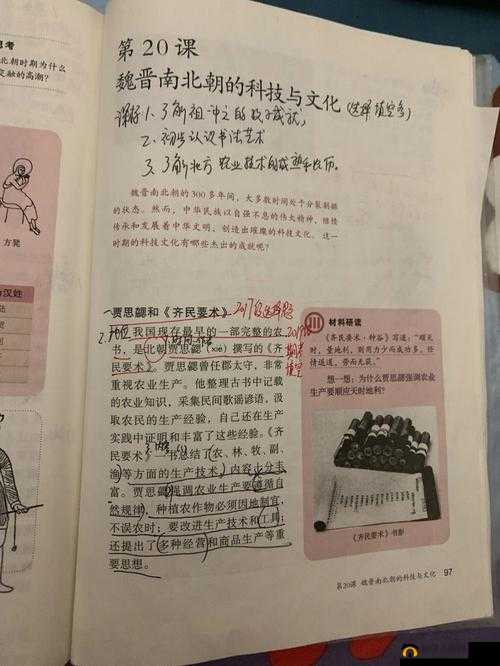 思考
北朝时期为什么
交融的高潮?
方凳
为汉姓
第20课
魏晋南北朝的科技与文化
1.了解祖冲之的
2.初步认识书法艺术
3.了解北方农业技术的
魏晋南北朝的300多年间，大多数时间处于分裂割据
的状态。然而，中华民族以自强不息的伟大精神，继续
传承和发展着中华文明，创造出璀璨的科技文化。这一
时期的科技文化有哪些杰出的成就呢?
一贾思勰和《齐民要术》
我国现存最早的一部完整的农
书，是北朝贾思勰（xié）撰写的《齐
民要术》。贾思勰曾任郡太守，非常
重视农业生产。他整理古书中记载
的农业知识，采集民间歌谣谚语，汲
取农民的生产经验，自己还在生产
实践中证明和丰富了这些经验。《齐
民要术》一书总结了农、林、牧、副、
渔等方面的生产技术，内容十分丰
富。贾思勰强调农业生产要遵循自
然规律，种植农作物必须因地制宜，
不误农时；要改进生产技术和工具；
还提出了多种经营和商品生产等重
要思想。
材料研读
《齐民要术·种谷》写道：“顺天
时，量地利，则用力少而成功多。任
情返道，劳而无获。”
想一想：为什么贾思勰强调农业
生产要顺应天时地利?
《齐民要术》书影
第20课 魏晋南北朝的科技与文化 97